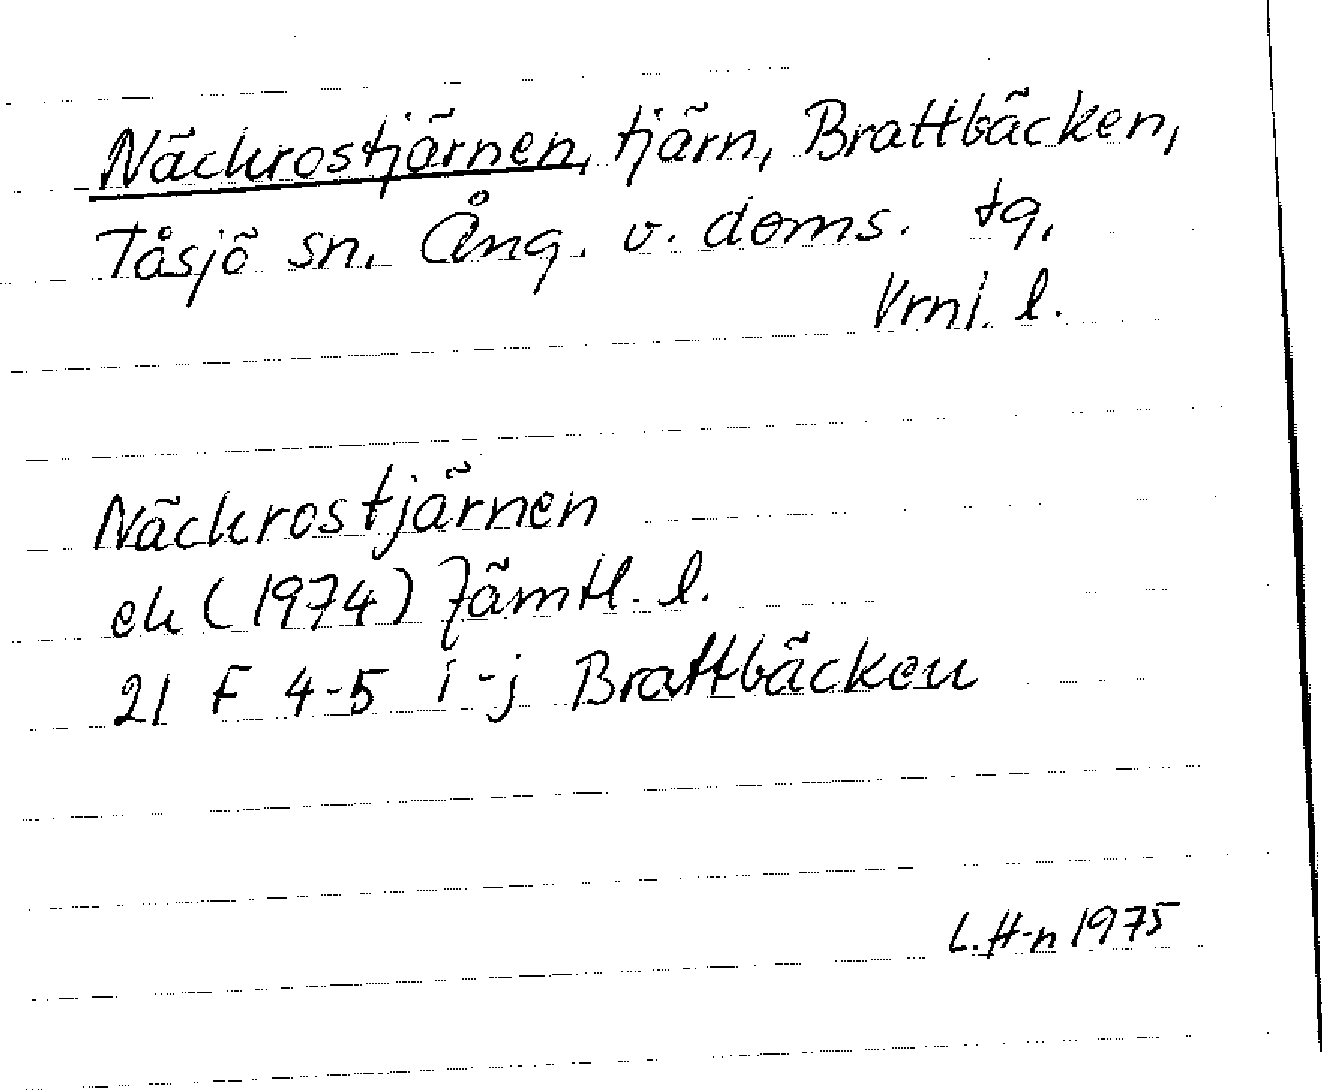 Näckrostjärnen, tjärn, Brattbäcken,
Tåsjö sn. Ång. v. doms. tg.
Vrnl. l.
Näckrostjärnen
ek (1974) Jämtl. l.
21 F 4-5 i-j Brattbäcken
L. H-n 1975